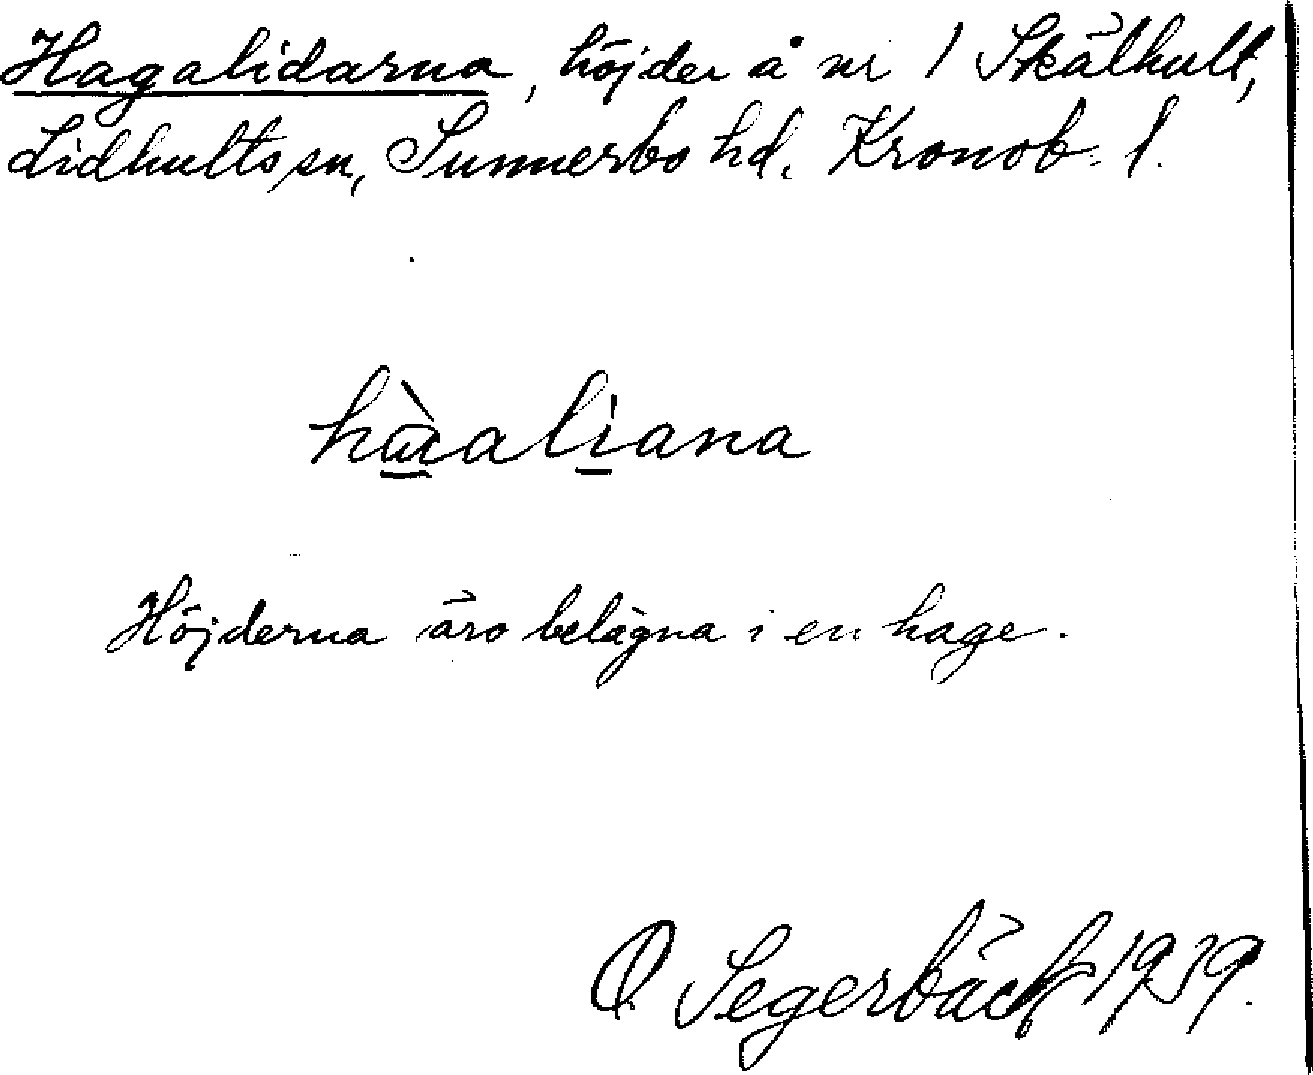 Hagalidarna, höjder å nr 1 Skälhult,
Lidhults sn, Sunnerbo hd. Kronob. l.
hàaliana
Höjderna äro belägna i en hage.
O Segerbäck 1939.